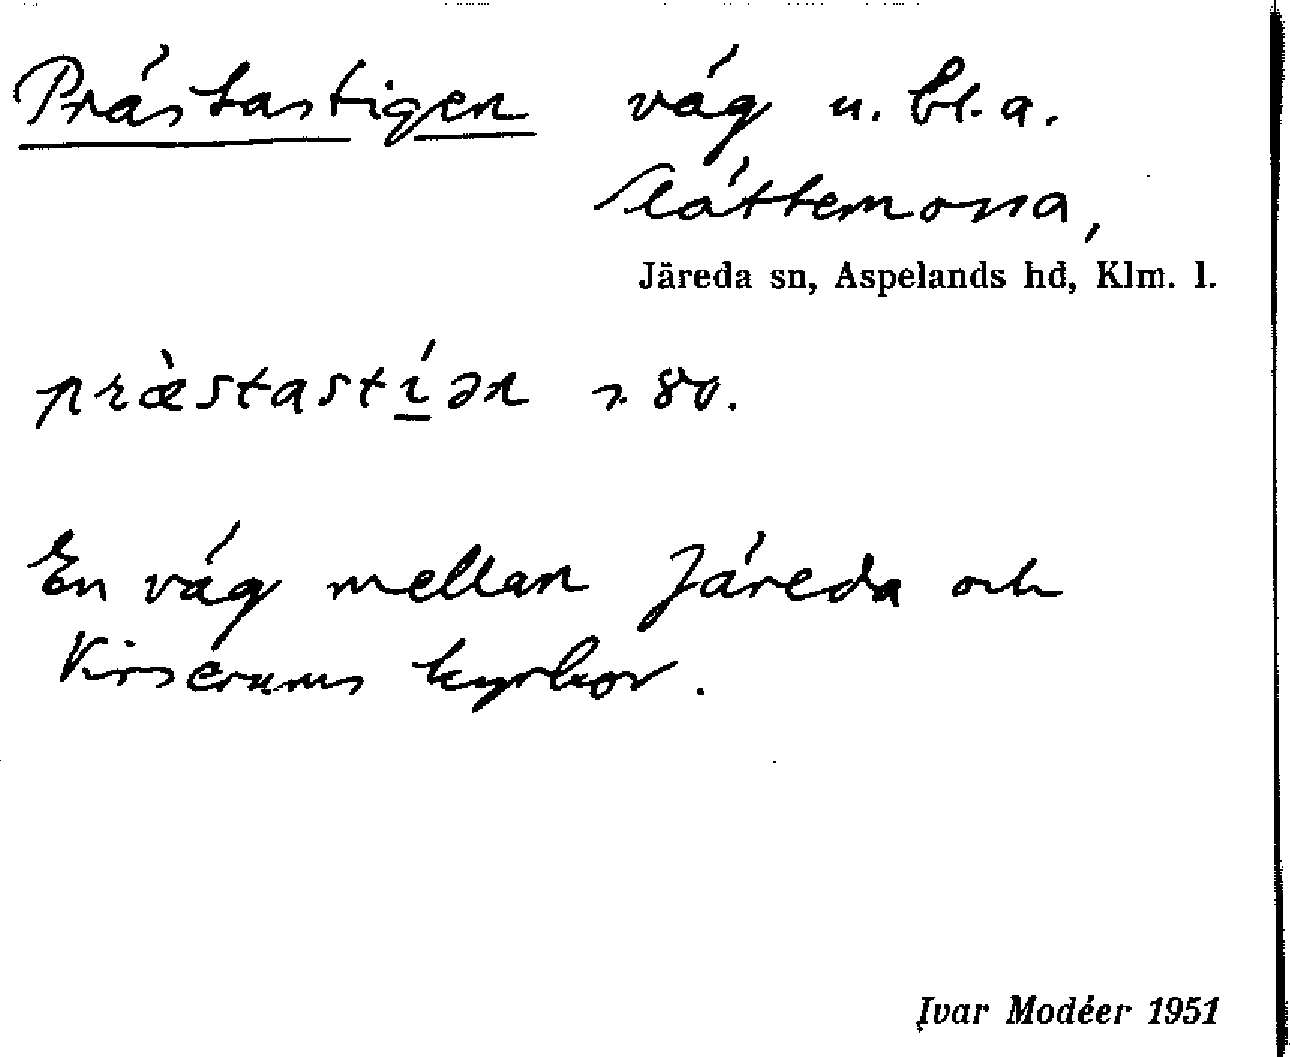 Prästastigen väg u. bl. a.
Slättemossa,
Järeda sn, Aspelands hd, Klm. l.
præ̀stastí̱ən 80.
En väg mellan Järeda och
Virserums kyrkor.
Ivar Modéer 1951